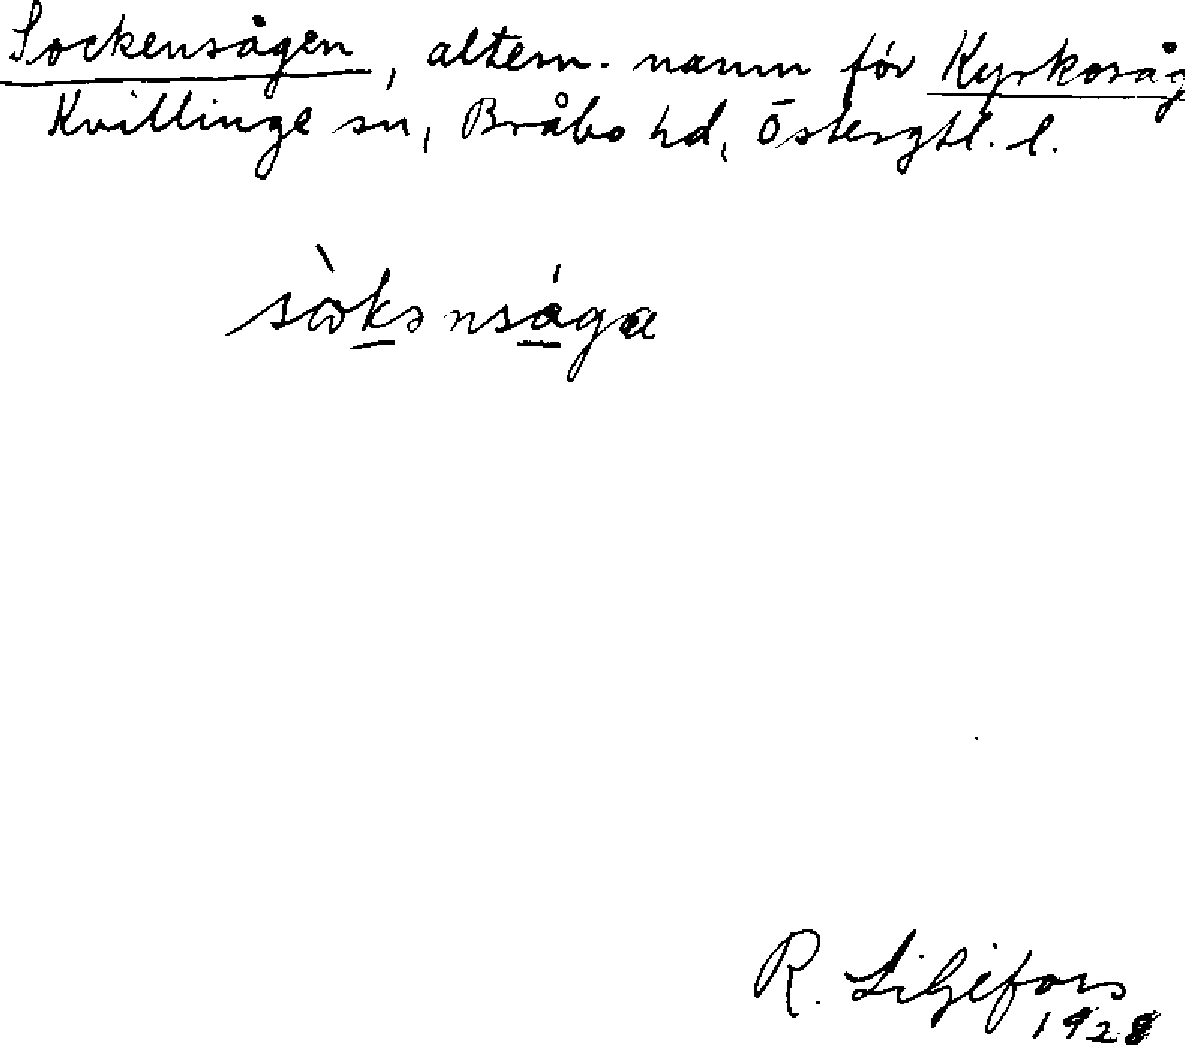 Sockensågen, altern. namn för Kyrkosåg
Kvillinge sn, Bråbo hd, Östergtl. l.
R. Liljefors
1928